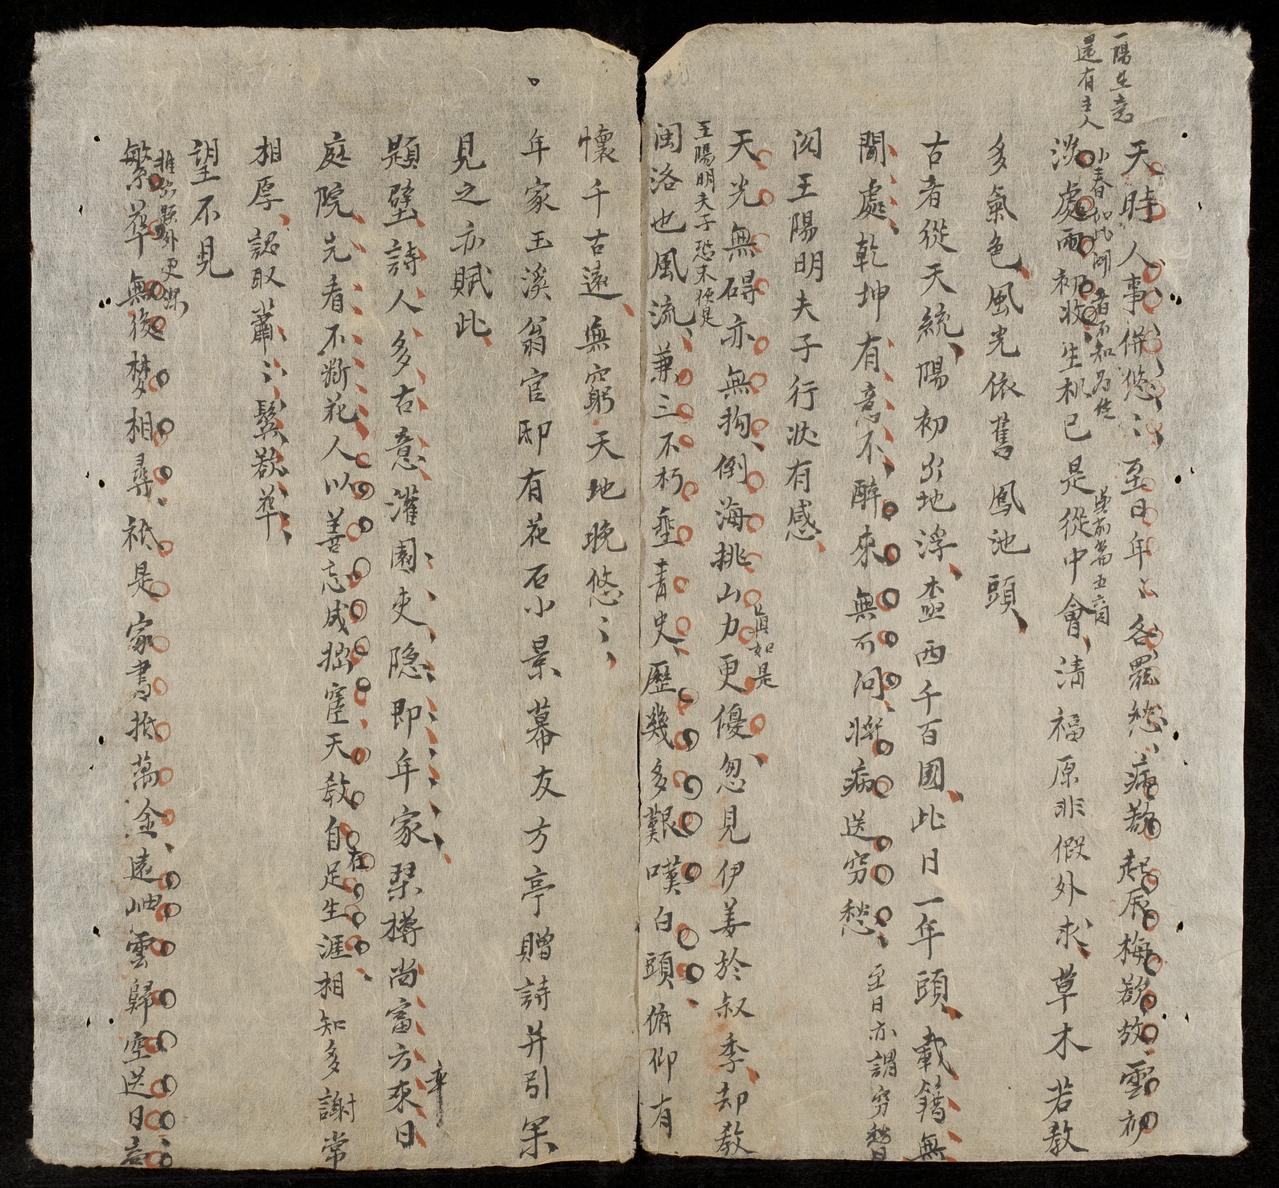 一陽生意
還有主人
天時人事併悠〻至日年〻各罷愁病欲起辰梅欲放雲初
淡處雨初收生机已是從中會清福原非假外求草木若教
多氣色風光依舊鳳池頭
古者從天統陽初出地浮盃西千百國此日一年頭載籍無
間處乾坤有意不醉來無可问將病送穷愁至日亦謂穷愁
閱王陽明夫子行狀有感
天光無碍亦無拘倒海挑山力更優忽見伊姜於叔季却教
真如是
王陽明夫子恐未便是
闽洛也風流兼三不朽垂青史歷幾多艱嘆白頭俯仰有
懷千古遠無窮天地晚悠〻
年家玉溪翁官邸有花石小景幕友方亭贈詩并引余
見之亦賦此
題壁詩人多古意灌園吏隐即年家琴樽尚富方來日
庭院先看不斷花人以善忘天教自足生涯相知多謝常
相厚認取蕭〻鬓欲華
望不見
繁華無復梦相尋祗是家書抵萬金遠岫雲歸空送日